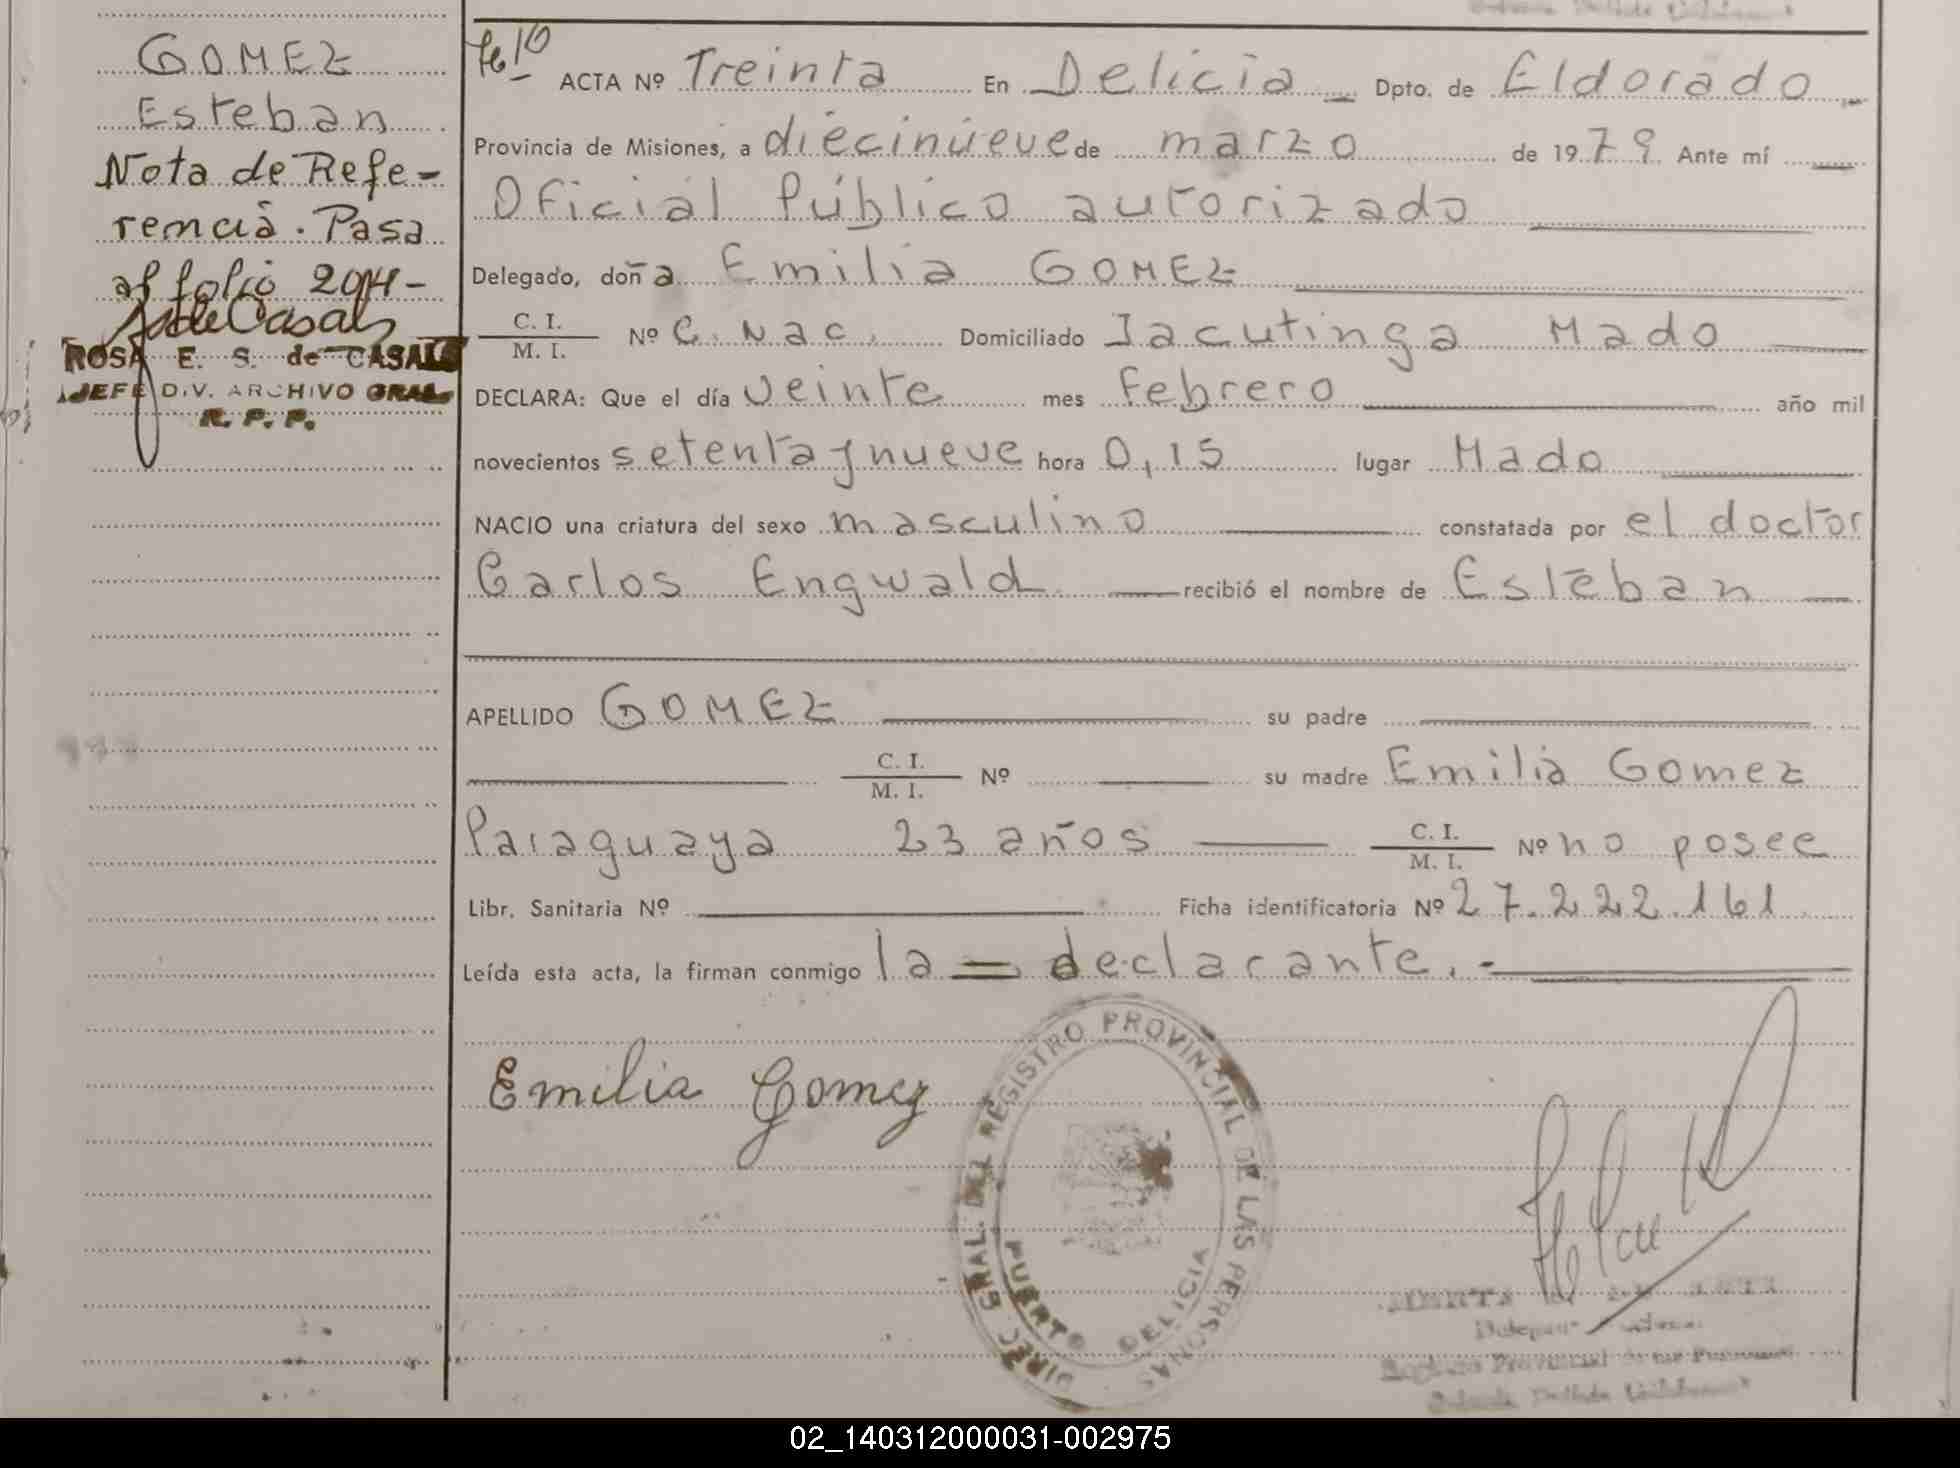 GOMEZ
Esteban
Nota de Refe-
rencia. Pasa
al folio 204-
ROSA E. S. de CASALS
JEFE DIV. ARCHIVO GRAL.
R. P. P.
ACTA Nº Treinta En Delicia Dpto. de Eldorado
Provincia de Misiones, a diecinueve de marzo de 1979. Ante mí
Oficial Público autorizado
Delegado, doña Emilia GOMEZ
C. I.
M. I. Nº C. Nac. Domiciliado Iacutinga Mado
DECLARA: Que el día veinte mes febrero año mil
novecientos setenta y nueve hora 0,15 lugar Mado
NACIO una criatura del sexo masculino constatada por el doctor
Carlos Engwald recibió el nombre de Esteban
APELLIDO GOMEZ su padre
C. I.
M. I. Nº su madre Emilia Gomez
Paraguaya 23 años C. I.
M. I. Nº no posee
Libr. Sanitaria Nº Ficha identificatoria Nº 27.222.161
Leída esta acta, la firman conmigo la = declarante.-
Emilia Gomez
DIREC. GRAL. DEL REGISTRO PROVINCIAL DE LAS PERSONAS
PUERTO DELICIA
Registro Provincial de las Personas
02_140312000031-002975